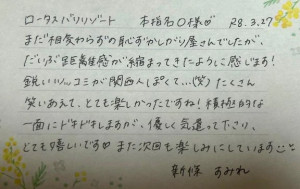 ロータスバリリゾート 本指名O様♡ R8.3.27
まだ相変わらずの恥ずかしがり屋さんでしたが、
だいぶ距離感が縮まってきたように感じます!
鋭いツッコミが関西人ぽくて…(笑)たくさん
笑いあえて、とても楽しかったですね!積極的な
一面にドキドキしますが、優しく気遣って下さり、
とても嬉しいです♡また次回も楽しみにしています
新條 すみれ